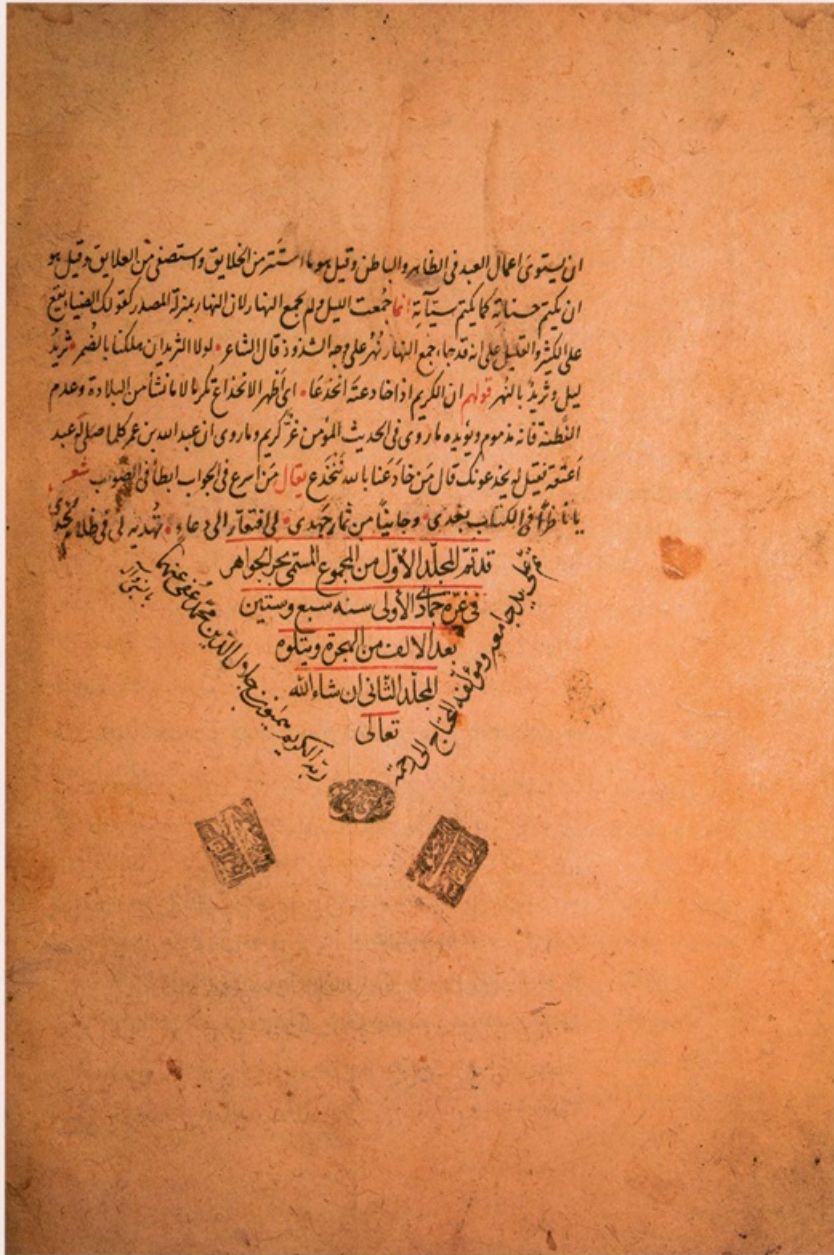 ان يستوى اعمال العبد فى الظاهر والباطن وقيل هو ما استتر من الخلايق واستصفى من العلايق وقيل هو
ان يكتم حسناته كما يكتم سيّآته انما جُمعت الليل ولم يجمع النهار لان النهار بمنزلة المصدر كقولك الضياء يقع
على الكثير والقليل على انه قد جاء جمع النهار نُهُر على وجه الشذوذ قال الشاعر لولا الثريدان هلكنا بالضُمر ثريدُ
ليل وثريدٌ بالنُهر قولهم ان الكريم اذا خادعته انخدعا اى اظهر الانخداع تكرما لا ما نشأ من البلادة وعدم
الفَطنة فانه مذموم ويؤيده ما روى فى الحديث المؤمن غرّ كريم وما روى ان عبد الله بن عمر كلما صلى له عبد
اعتقه فقيل له يخدعونك قال مَن خادَعَنا بالله نَنْخَدع يقال مَن اسرع فى الجواب ابطأ فى الصواب شعر
يا ناظراً فى الكتاب بعدى وجانيًا من ثمار جَهدى لى افتقار الى دعاء تهديه لى فى ظلام لحدى
قد تمّ المجلّد الاوّل من المجموع المسمى بحر الجواهر
فى غرّة جمادى الأولى سنه سبع وستين
بعد الالف من الهجرة ويتلوه
المجلّد الثانى ان شاء الله
تعالى
تمّ على يد جامعه ومؤلفه المحتاج الى رحمة
ربّه الكريم بن جلال الدّين محمّد عُفى عنهما